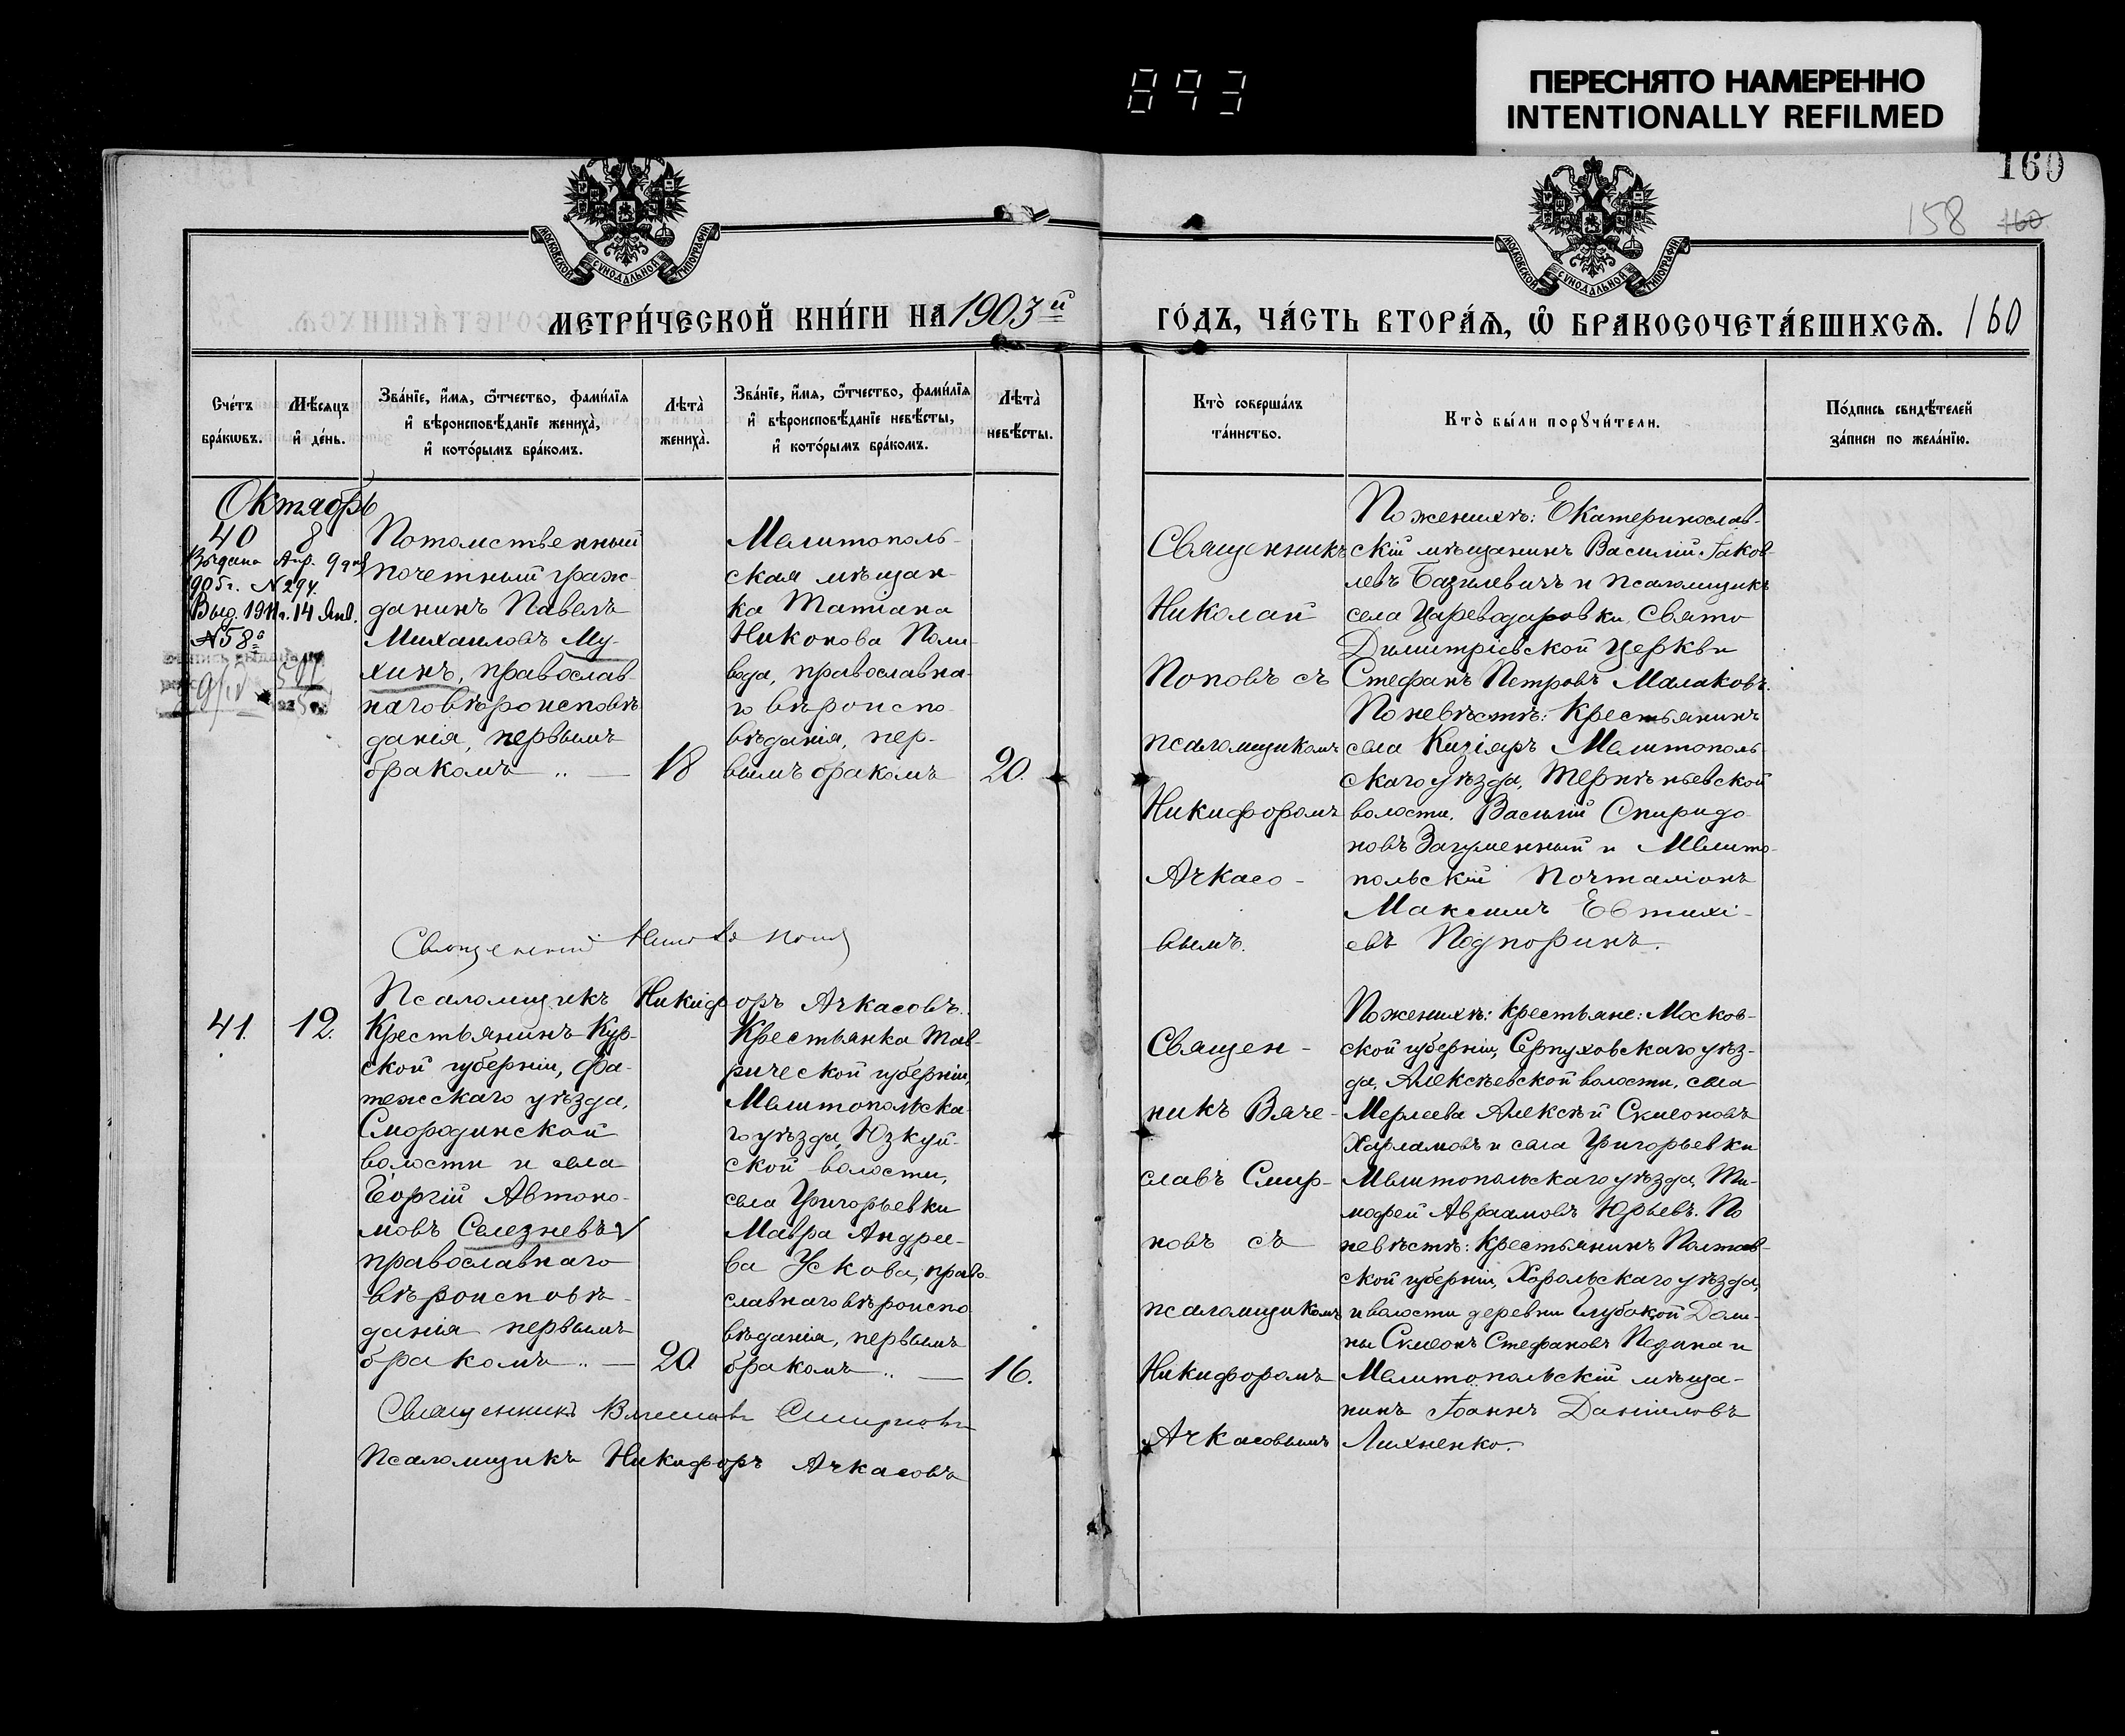 893
ПЕРЕСНЯТО НАМЕРЕННО
INTENTIONALLY REFILMED
160
158 160
МОСКОВСКОЙ СѴНОДАЛЬНОЙ ТИПОГРАФІИ
МОСКОВСКОЙ СѴНОДАЛЬНОЙ ТИПОГРАФІИ
МЕТРИ́ЧЕСКОЙ КНИ́ГИ НА 1903й
ГО́ДЪ, ЧА́СТЬ ВТОРА́Ѧ, Ѽ БРАКОСОЧЕТА́ВШИХСѦ. 160
Сче́тъ
бра́кѡвъ.
Мѣ́сяцъ
и҆ де́нь.
Зва́нїе, и҆́мѧ, ѻ҆́тчество, фами́лїѧ
и҆ вѣроисповѣ́данїе жениха̀,
и҆ кото́рымъ бра́комъ.
Лѣта̀
жениха̀.
Зва́нїе, и҆́мѧ, ѻ҆́тчество, фами́лїѧ
и҆ вѣроисповѣ́данїе невѣ́сты,
и҆ кото́рымъ бра́комъ.
Лѣта̀
невѣ́сты.
Кто̀ соверша́лъ
та́инство.
Кто̀ бы́ли порꙋчи́тели.
По́дпись свидѣ́телей
за́писи по жела́нїю.
Октябрь
40
8
Выдана Апр. 9 дня
905г. N294.
Выд. 1911г. 14 Янв.
N58
Потомственный
почетный граж-
данинъ Павелъ
Михаиловъ Му-
хинъ, православ-
наго вѣроисповѣ
данія, первымъ
бракомъ
18
Мелитополь-
ская мѣщан-
ка Татіана
Никонова Поли-
вода, православна-
го вѣроиспо-
вѣданія, пер-
вымъ бракомъ
20.
Священникъ
Николай
Поповъ съ
псаломщикомъ
Никифоромъ
Ачкасо-
вымъ.
По женихѣ: Екатеринослав-
скій мѣщанинъ Василій Іаков-
левъ Базилевичъ и псаломщикъ
села Цареводаровки, Свято
Димитріевской церкви
Стефанъ Петровъ Малаковъ.
По невѣстѣ: Крестьянинъ
села Кизіяръ Мелитополь-
скаго уѣзда, Терпѣньевской
волости, Василій Спиридо-
новъ Загуменный и Мелито-
польскій почталіонъ
Максимъ Евтихі-
евъ Подпоринъ.
Священникъ Николай Поповъ
Псаломщикъ Никифоръ Ачкасовъ.
41.
12.
Крестьянинъ Кур-
ской губерніи, Фа-
тежскаго уѣзда,
Смородинской
волости и села
Георгій Автоно-
мовъ Селезневъ
православнаго
вѣроисповѣ-
данія первымъ
бракомъ
20.
Крестьянка Тав-
рической губерніи,
Мелитопольска-
го уѣзда, Юзкуй-
ской волости,
села Григорьевки
Мавра Андрее-
ва Ускова, право-
славнаго вѣроиспо
вѣданія, первымъ
бракомъ
16.
Священ-
никъ Вяче-
славъ Смир-
новъ съ
псаломщикомъ
Никифоромъ
Ачкасовымъ
По женихѣ: крестьяне: Москов-
ской губерніи, Серпуховскаго уѣз-
да, Алексѣевской волости, села
Мерлеева Алексѣй Симеоновъ
Харламовъ и села Григорьевки
Мелитопольскаго уѣзда, Ти-
мофей Авраамовъ Юрьевъ. По
невѣстѣ: крестьянинъ Полтав-
ской губерніи, Хорольскаго уѣзда,
и волости деревни Глубокой Доли-
ны Симеонъ Стефановъ Педина и
Мелитопольскій мѣща-
нинъ Іоаннъ Даніиловъ
Лихненко.
Священникъ Вячеславъ Смирновъ
Псаломщикъ Никифоръ Ачкасовъ